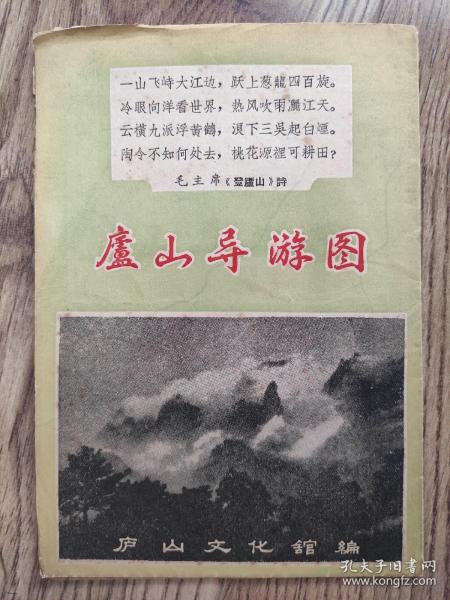 一山飞峙大江边，跃上葱龍四百旋。
冷眼向洋看世界，热风吹雨灑江天。
云横九派浮黄鶴，浪下三吴起白烟。
陶令不知何处去，桃花源裡可耕田？
毛主席《登廬山》詩
廬山导游图
庐山文化舘編
孔夫子旧书网
www.kongfz.com